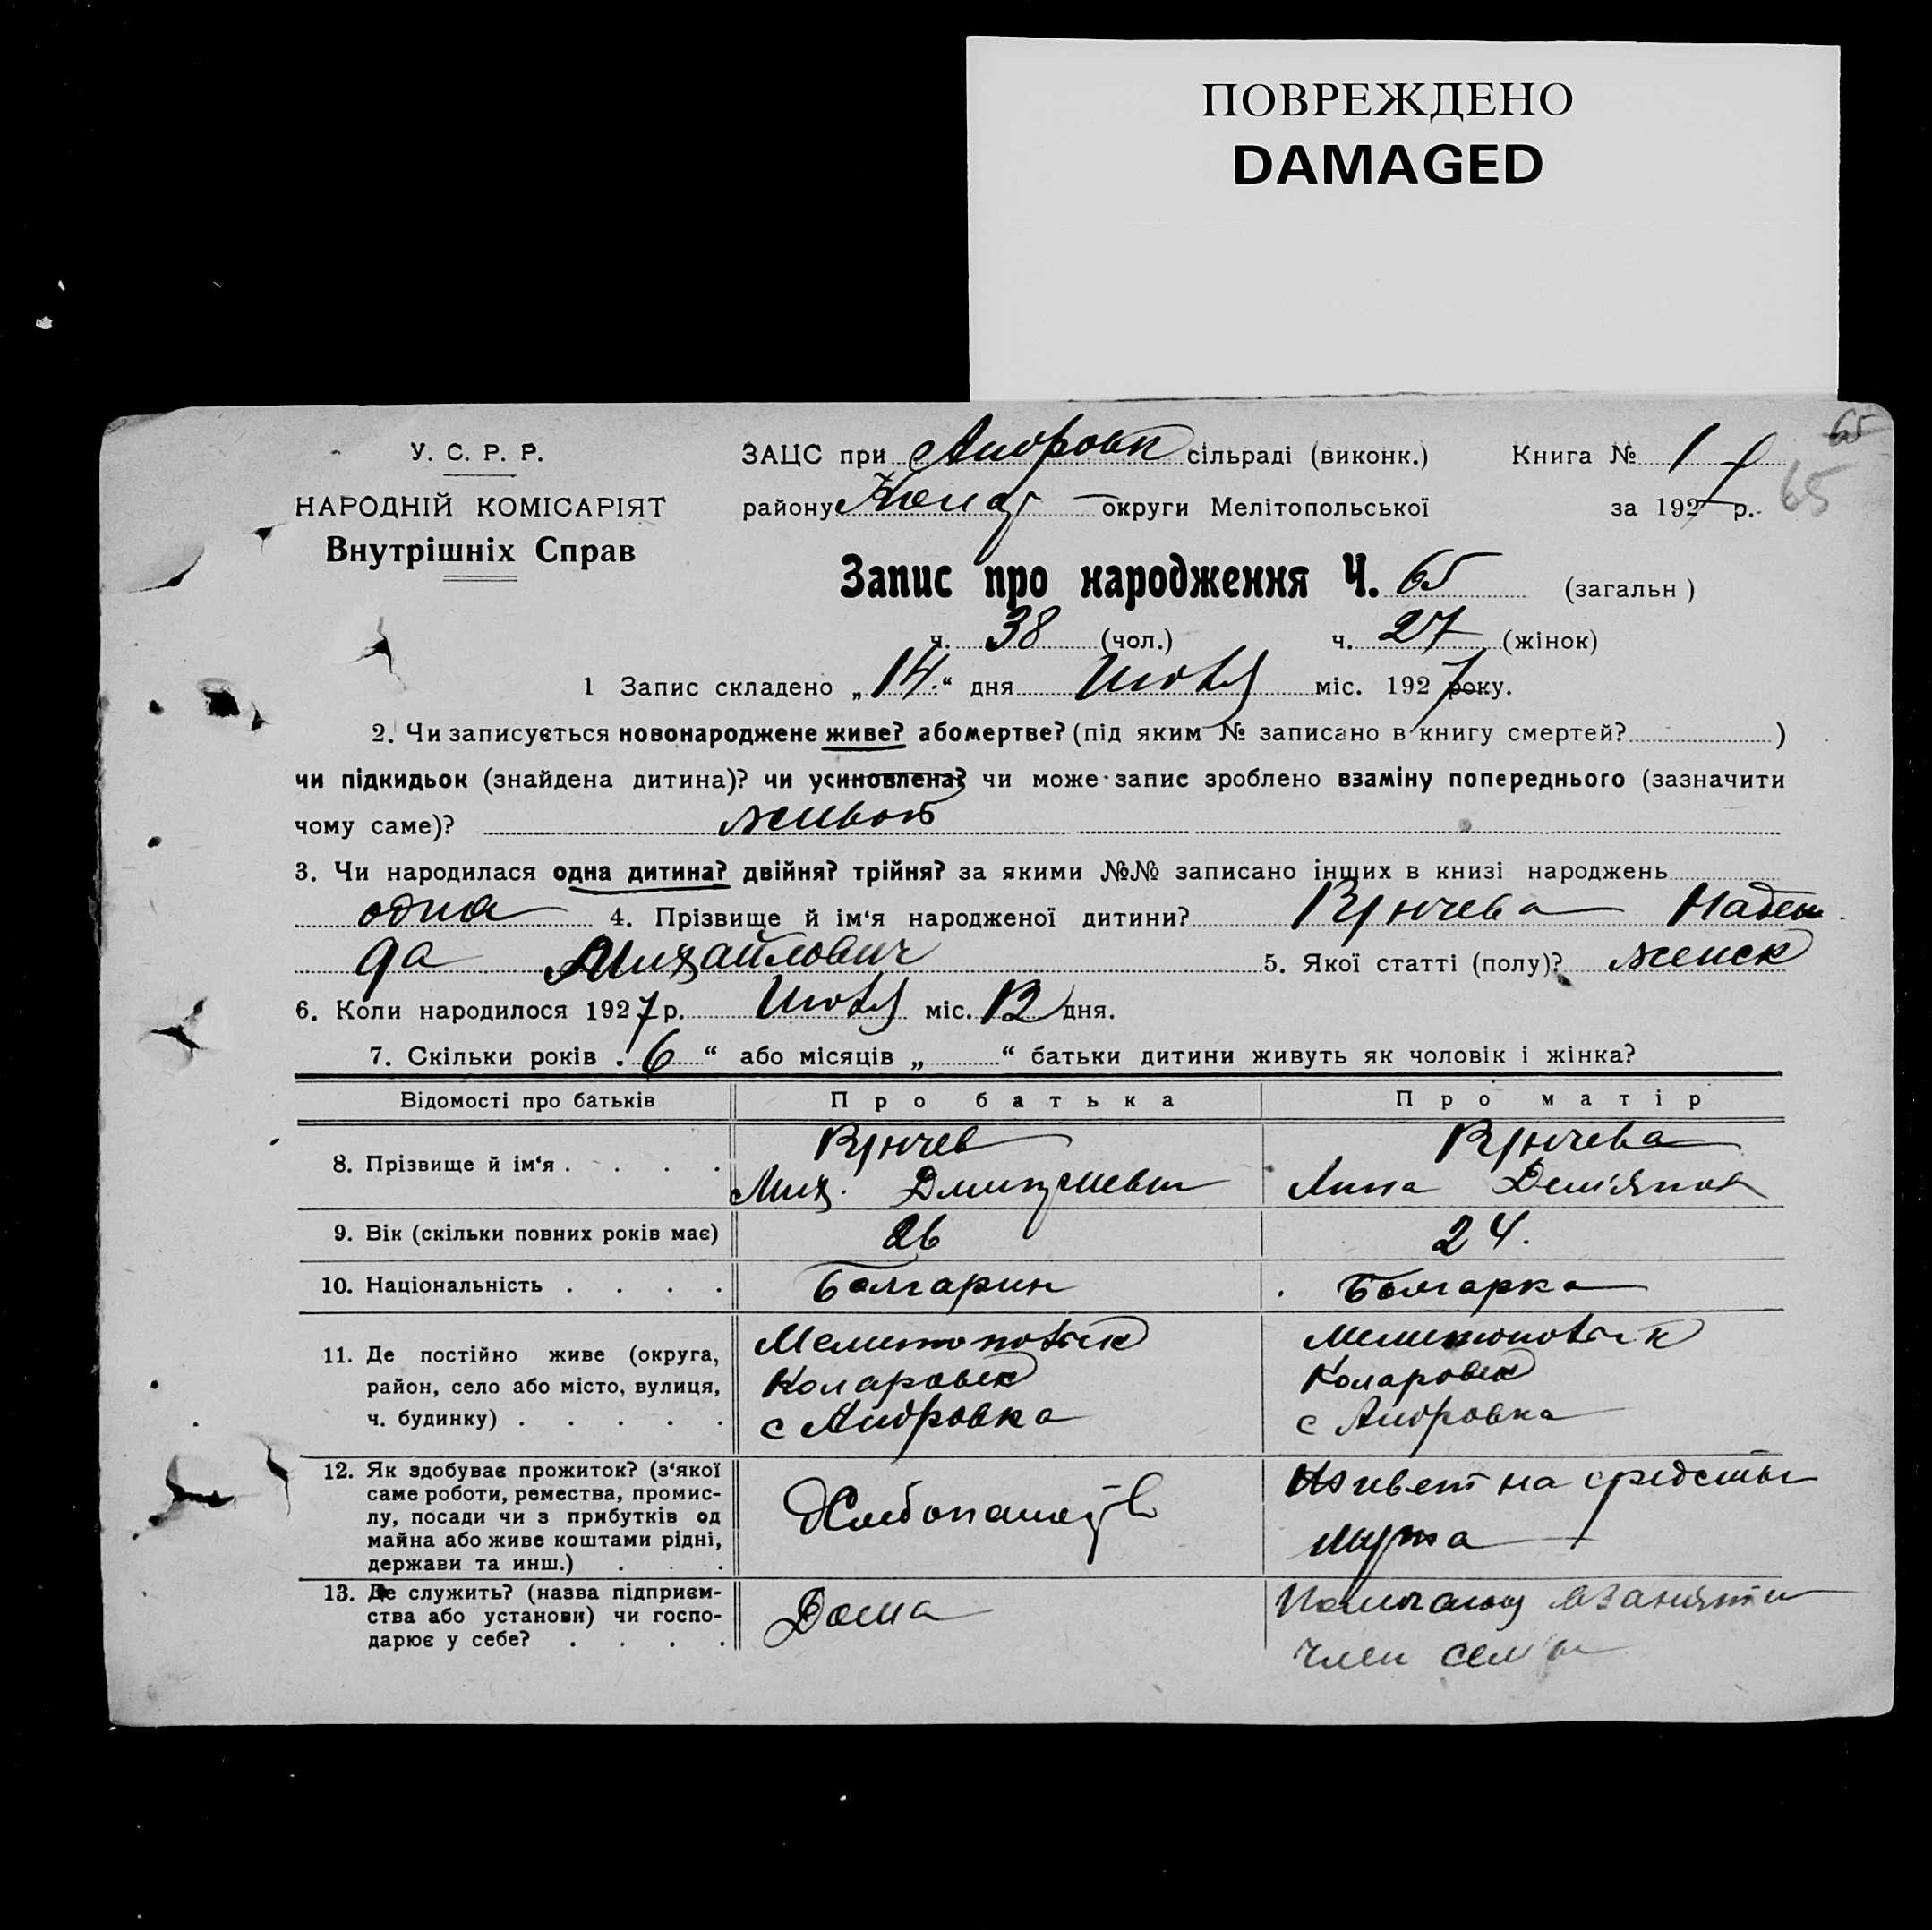 ПОВРЕЖДЕНО
DAMAGED
65
У. С. Р. Р.
НАРОДНІЙ КОМІСАРІЯТ
Внутрішніх Справ
ЗАЦС при Андровк сільраді (виконк.) Книга № 1
району Колар округи Мелітопольської за 1927 р. 65
Запис про народження Ч. 65 (загальн )
ч. 38 (чол.) ч. 27 (жінок)
1 Запис складено „14.“ дня Июля міс. 1927 року.
2. Чи записується новонароджене живе? або мертве? (під яким № записано в книгу смертей? )
чи підкидьок (знайдена дитина)? чи усиновлена? чи може запис зроблено взаміну попереднього (зазначити
чому саме)? живой
3. Чи народилася одна дитина? двійня? трійня? за якими №№ записано інших в книзі народжень
одна 4. Прізвище й ім‘я народженої дитини? Надеж
да Михайлович 5. Якої статті (полу)? женск
6. Коли народилося 1927 р. Июля міс. 12 дня.
7. Скільки років „6“ або місяців „ “ батьки дитини живуть як чоловік і жінка?
Відомості про батьків Про батька Про матір
8. Прізвище й ім‘я . . . .
Мих. Дмитриевич Анна Демьянов
9. Вік (скільки повних років має) 26 24.
10. Національність . . . . Болгарин Болгарка
11. Де постійно живе (округа,
район, село або місто, вулиця,
ч. будинку) . . . . .
Мелитопольск
Коларовск
с Андровка
Мелитопольск
Коларовск
с Андровка
12. Як здобуває прожиток? (з‘якої
саме роботи, ремества, промис-
лу, посади чи з прибутків од
майна або живе коштами рідні,
держави та инш.) . . .
Хлебопашеств
живет на средствы
мужа
13. Де служить? (назва підприєм-
ства або установи) чи госпо-
дарює у себе? . . . .
Дома
Помогающ занятти
член семьи